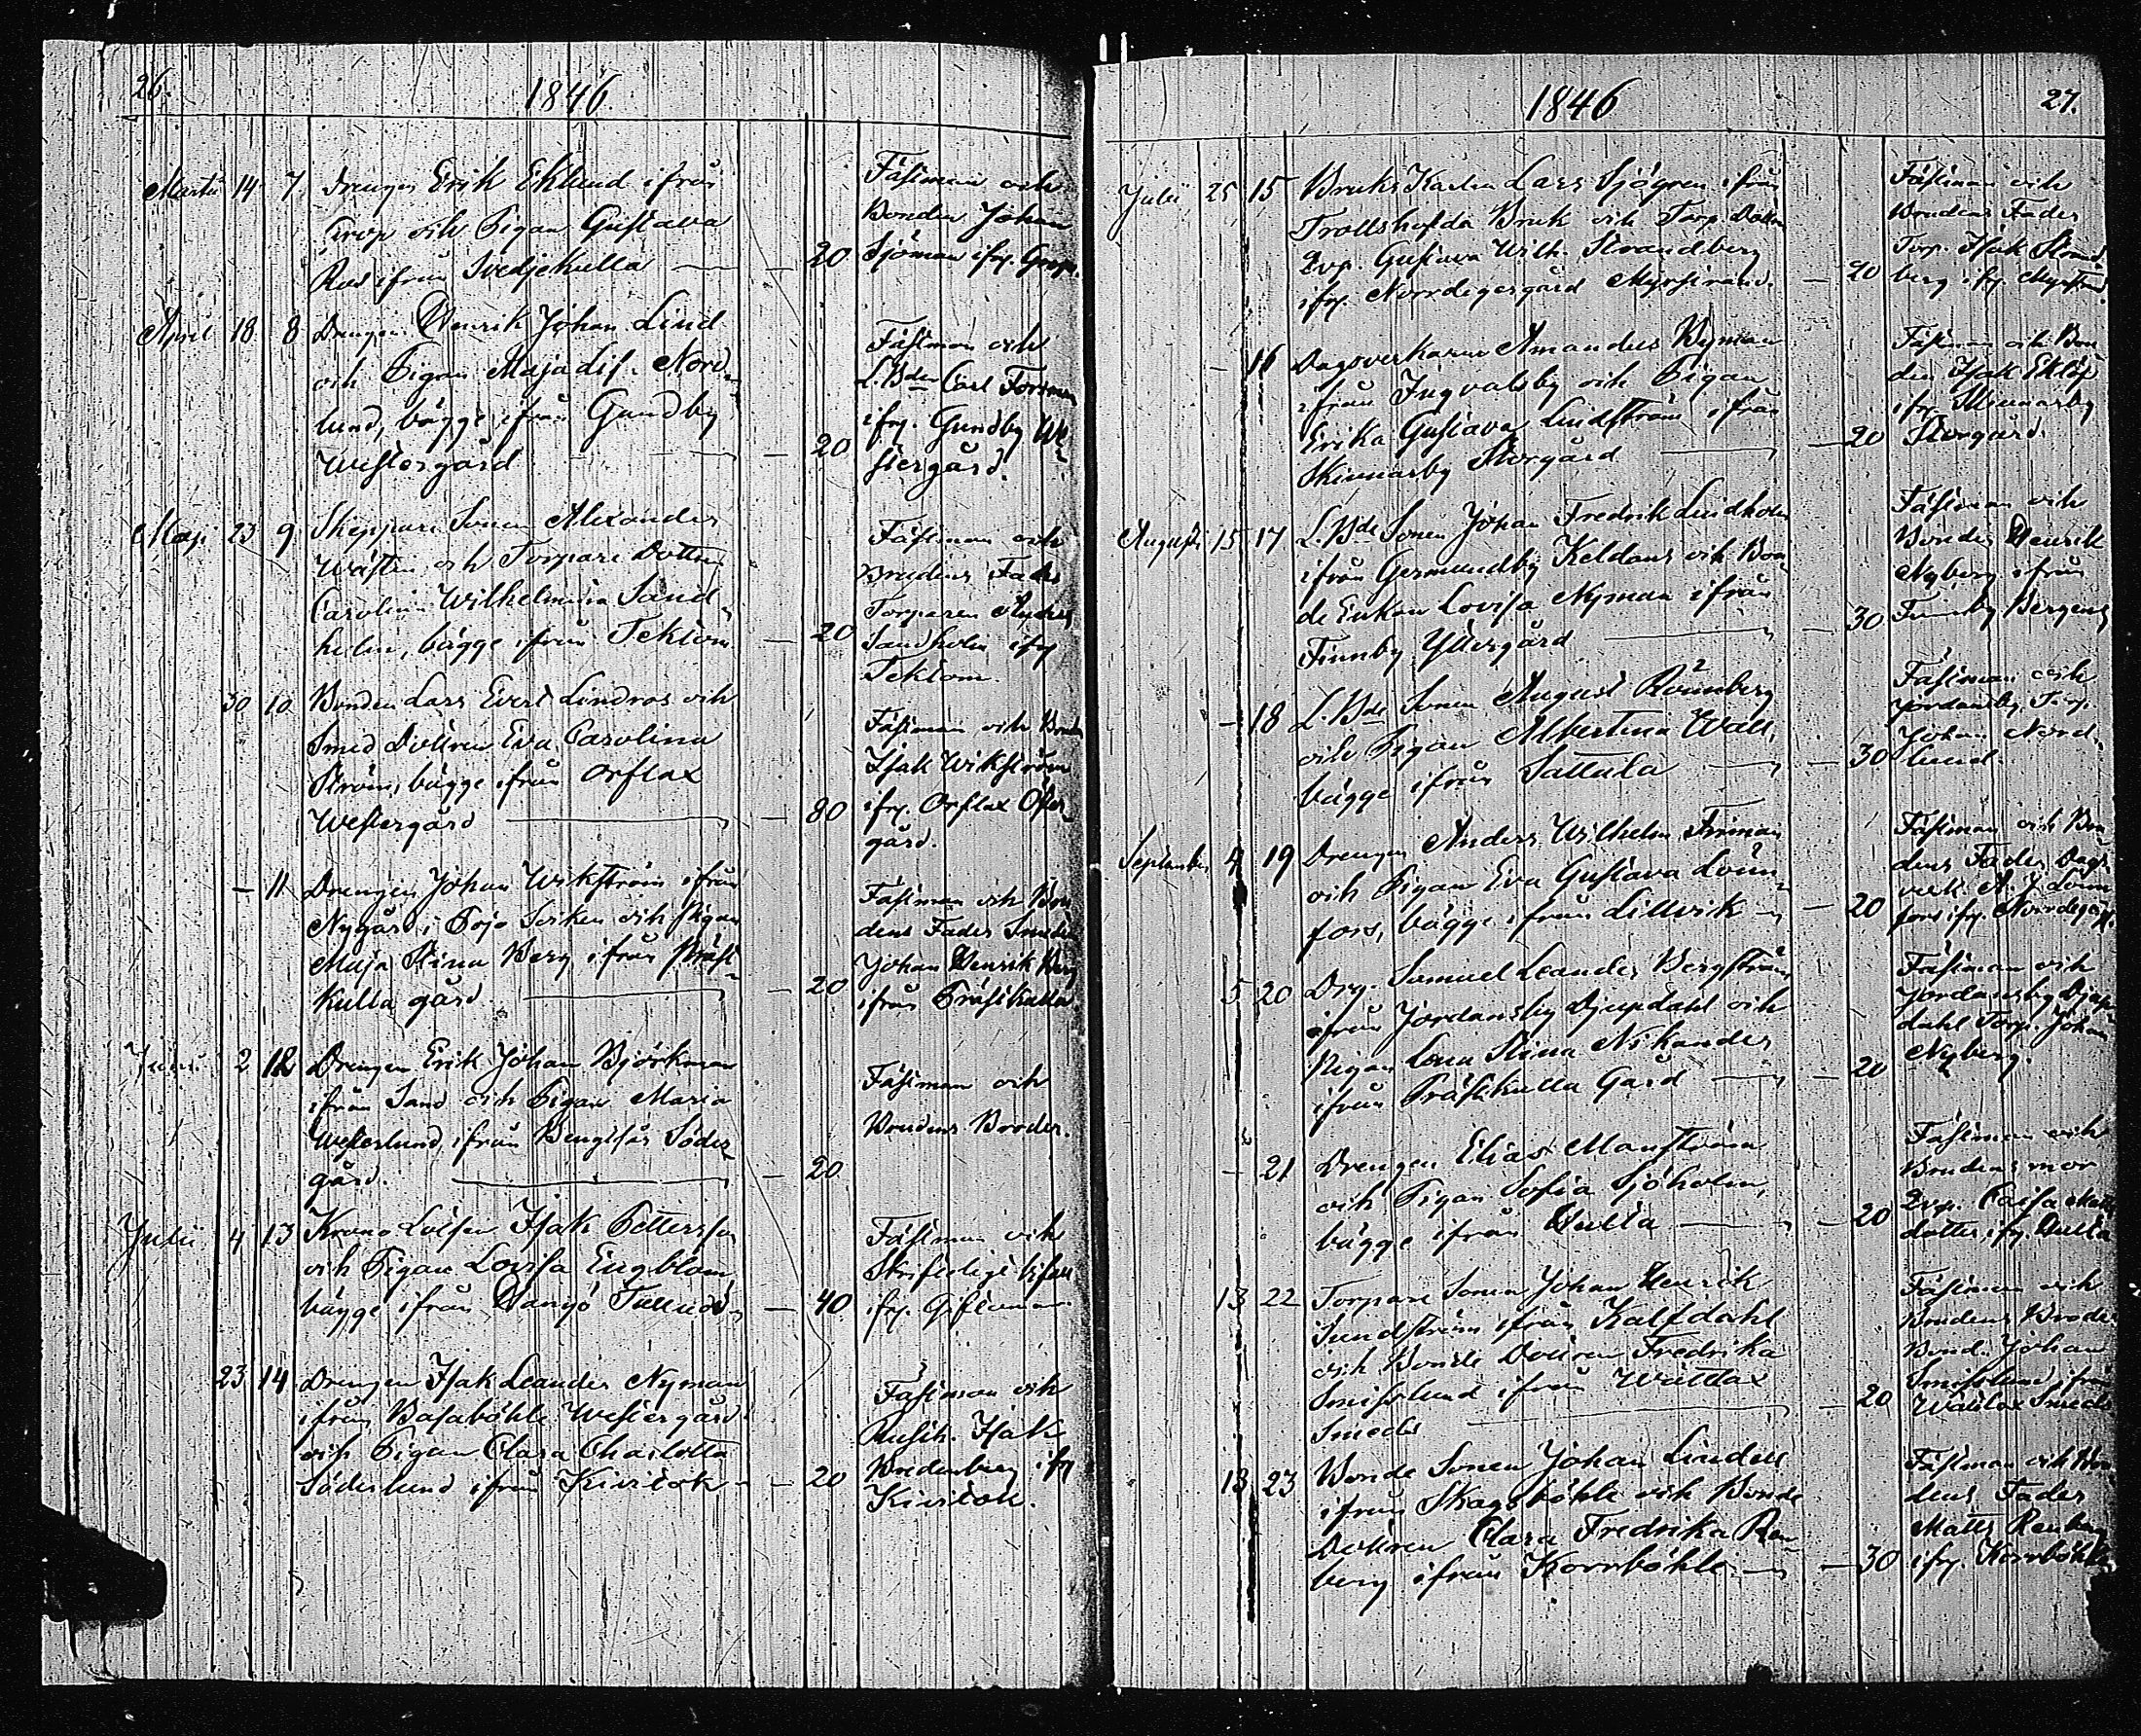 26.
1846
Martii 14 7 Drengen Erik Eklund ifrån
Grop och Pigan Gustava
Ros ifrån Svedjekulla — 20
Fästman och
Bonden Johan
Sjöman ifr. Grop.
April 18 8 Drengen Henrik Johan Lind
och Pigan Maja Lis. Nord-
lund, bägge ifrån Gundby
Westergård — 20
Fästman och
L.Bden Carl Forsman
ifrg. Gundby We-
stergård.
Maji 23 9 Skeppare Sonen Alexander
Wästen och Torpare Dottren
Carolina Wilhelmina Sand-
holm, bägge ifrån Tektom — 20
Fästman och
Brudens Fader
Torparen Anders
Sandholm ifrg
Tektom.
30 10 Bonden Lars Evert Lindros och
Smed Dottren Eva Carolina
Ström, bägge ifrån Orslax
Westergård — 80
Fästman och Bonden
Isak Wikström
ifrg. Orslax Öster-
gård.
— 11 Drengen Johan Wikström ifrån
Nygård i Pojo Socken och Pigan
Maja Stina Berg ifrån Präst-
kulla gård — 20
Fästman och Bru-
dens Fader Smeden
Johan Henrik Berg
ifrån Prästkulla
Junii 2 12 Drengen Erik Johan Björkman
ifrån Sand och Pigan Maria
Westerlund, ifrån Bengtsår Söder-
gård. — 20
Fästman och
Brudens Broder.
Julii 4 13 Krono Lotsen Isak Pettersson
och Pigan Lovisa Engblom,
bägge ifrån Hangö Tulludd — 40
Fästman och
Skrifteligt bifall
ifrg. Giftoman.
23 14 Drengen Isak Leander Nyman
ifrån Basaböhle Westergård
och Pigan Clara Charlotta
Söderlund ifrån Kivitok — 20
Fästman och
Rusth. Isak
Bredenberg ifrg
Kivitok.
1846
27.
Julii 25 15 Bruks Karlen Lars Sjögren ifrån
Trollshofda Bruk och Torp. Dottren
Qvp. Gustava Wilh. Strandberg
ifrg. Norrdigergård Myrstrand. — 20
Fästman och
Brudens Fader
Torp. Isak Strand-
berg ifrg. Myrstrand.
— 16 Dagsverkaren Amandus Byman
ifrån Ingvalsby och Pigan
Erika Gustava Lindström ifrån
Skinnarby Storgård — 20
Fästman och Bon-
den Isak Eklöf
ifrg. Skinnarby
Storgård.
Augusti 15 17 L.Bde Sonen Johan Fredrik Lindholm
ifrån Germundby Keldans och Bon-
de Enkan Lovisa Nyman ifrån
Finnby Yttergård — 30
Fästman och
Bonden Henrik
Nyberg ifrån
Finnby Bergens
— 18 L.Bde Sonen August Rönnberg
och Pigan Albertina Wall,
bägge ifrån Sattala — 30
Fästman och
Jordansby Torp.
Johan Nord-
lund.
September 4 19 Drengen Anders Wilhelm Finman
och Pigan Eva Gustava Lönn-
fors, bägge ifrån Lillvik — 20
Fästman och Bru-
dens Fader Dags-
verk. A. J. Lönn-
fors ifrg.
5 20 Drg. Samuel Leander Bergström
ifrån Jordansby Djupdahl och
Pigan Lena Stina Nikander
ifrån Prästkulla Gård — 20
Fästman och
Jordansby Djup-
dahl Torp. Johan
Nyberg.
— 21 Drengen Elias Manström
och Pigan Sofia Sjöholm,
bägge ifrån Hulta — 20
Fästman och
Brudens mor
Qvp. Caisa Matts
dotter ifrg. Hulta
13 22 Torpare Sonen Johan Henrik
Sundström ifrån Kalfdahl
och Bonde Dottren Fredrika
Smisslund ifrån Wättlax
Smeds — 20
Fästman och
Brudens Broder
Bond. Johan
Smisslund ifrån
Wättlax Smeds
13 23 Bonde Sonen Johan Lindell
ifrån Skogsböhle och Bonde
Dottren Clara Fredrika Ren-
berg ifrån Korrböhle — 30
Fästman och Bru-
dens Fader
Matts Renberg
ifrg. Korrböhle